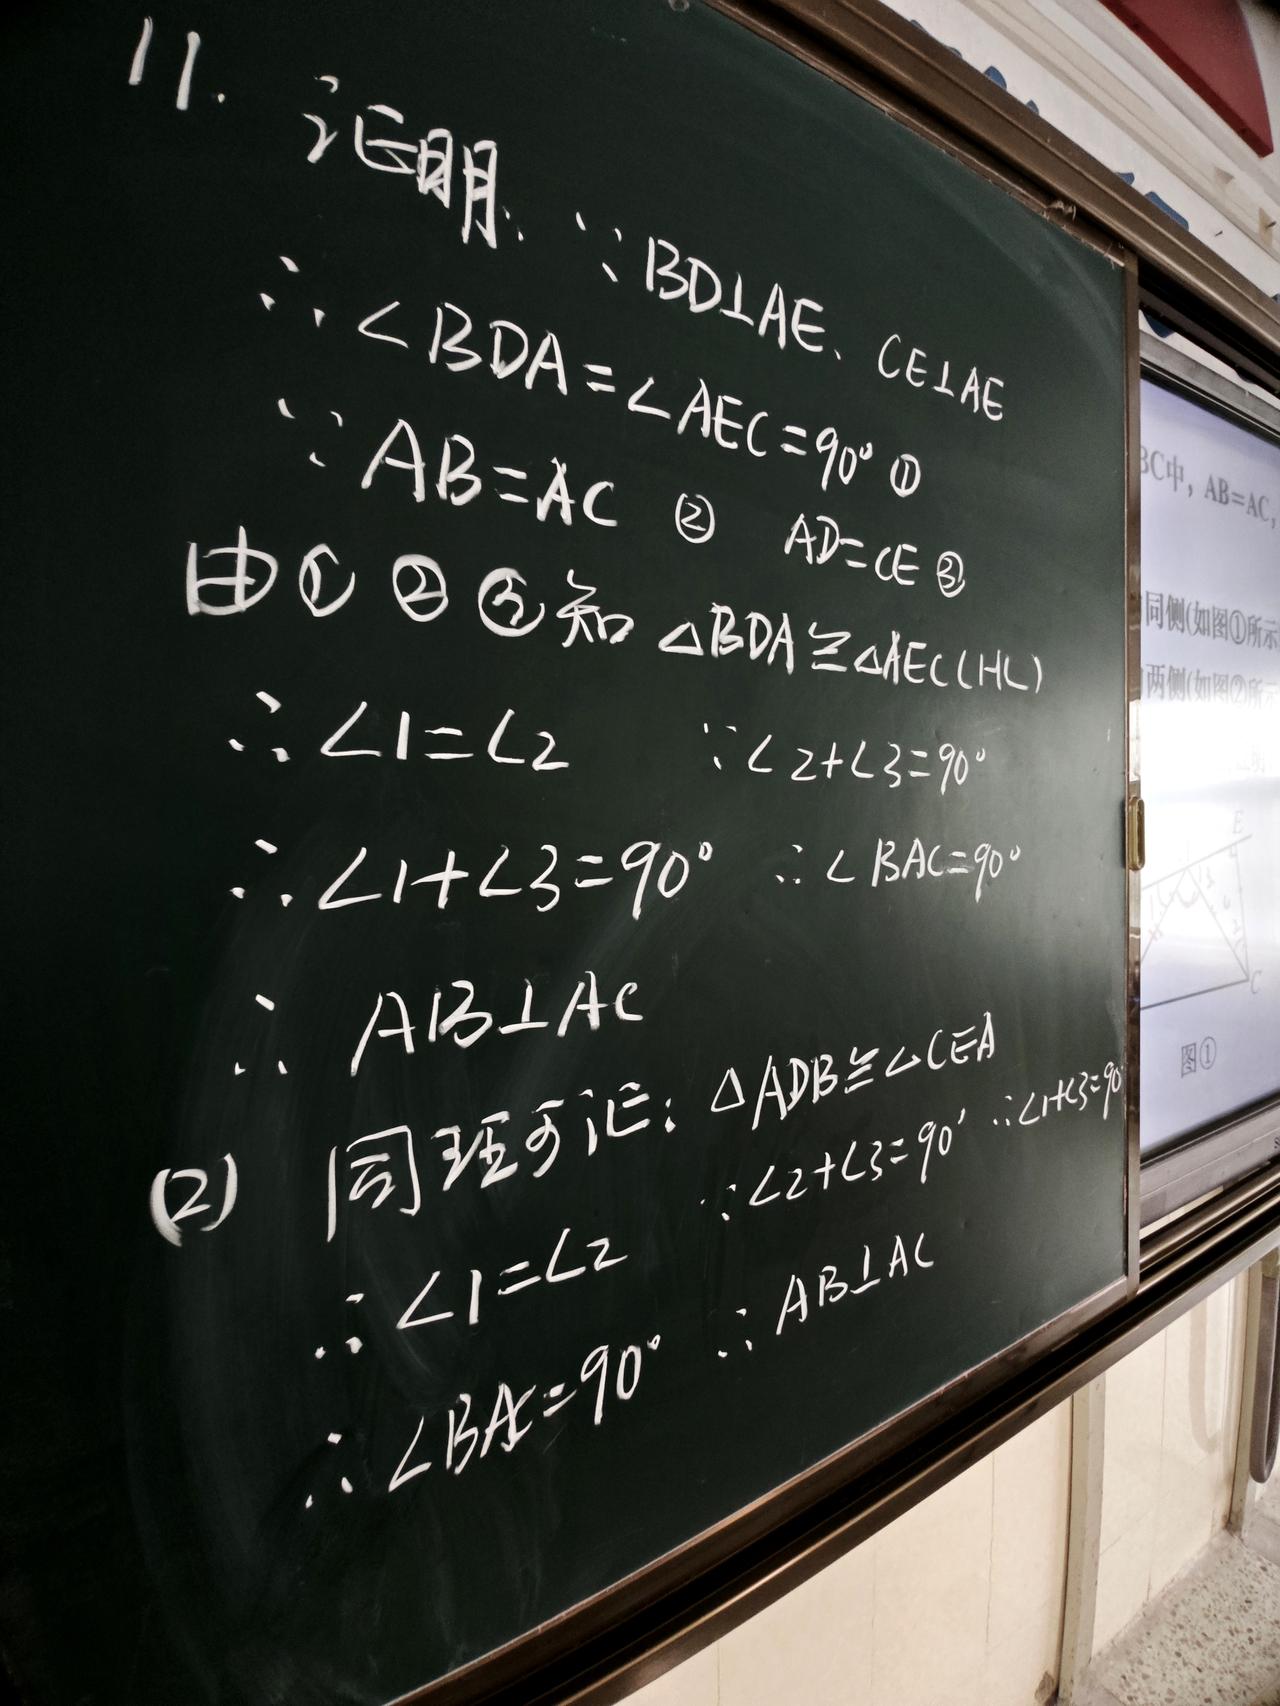 11. 证明: ∵BD⊥AE、CE⊥AE
∴∠BDA=∠AEC=90° ①
∵AB=AC ② AD=CE ③
由①②③知 △BDA≌△AEC(HL)
∴∠1=∠2 ∵∠2+∠3=90°
∴∠1+∠3=90° ∴∠BAC=90°
∴ AB⊥AC
(2) 同理可证: △ADB≌△CEA
∴∠1=∠2 ∵∠2+∠3=90° ∴∠1+∠3=90°
∴∠BAC=90° ∴AB⊥AC
BC中, AB=AC,
同侧(如图①所示
两侧(如图②所示
E
C
图①